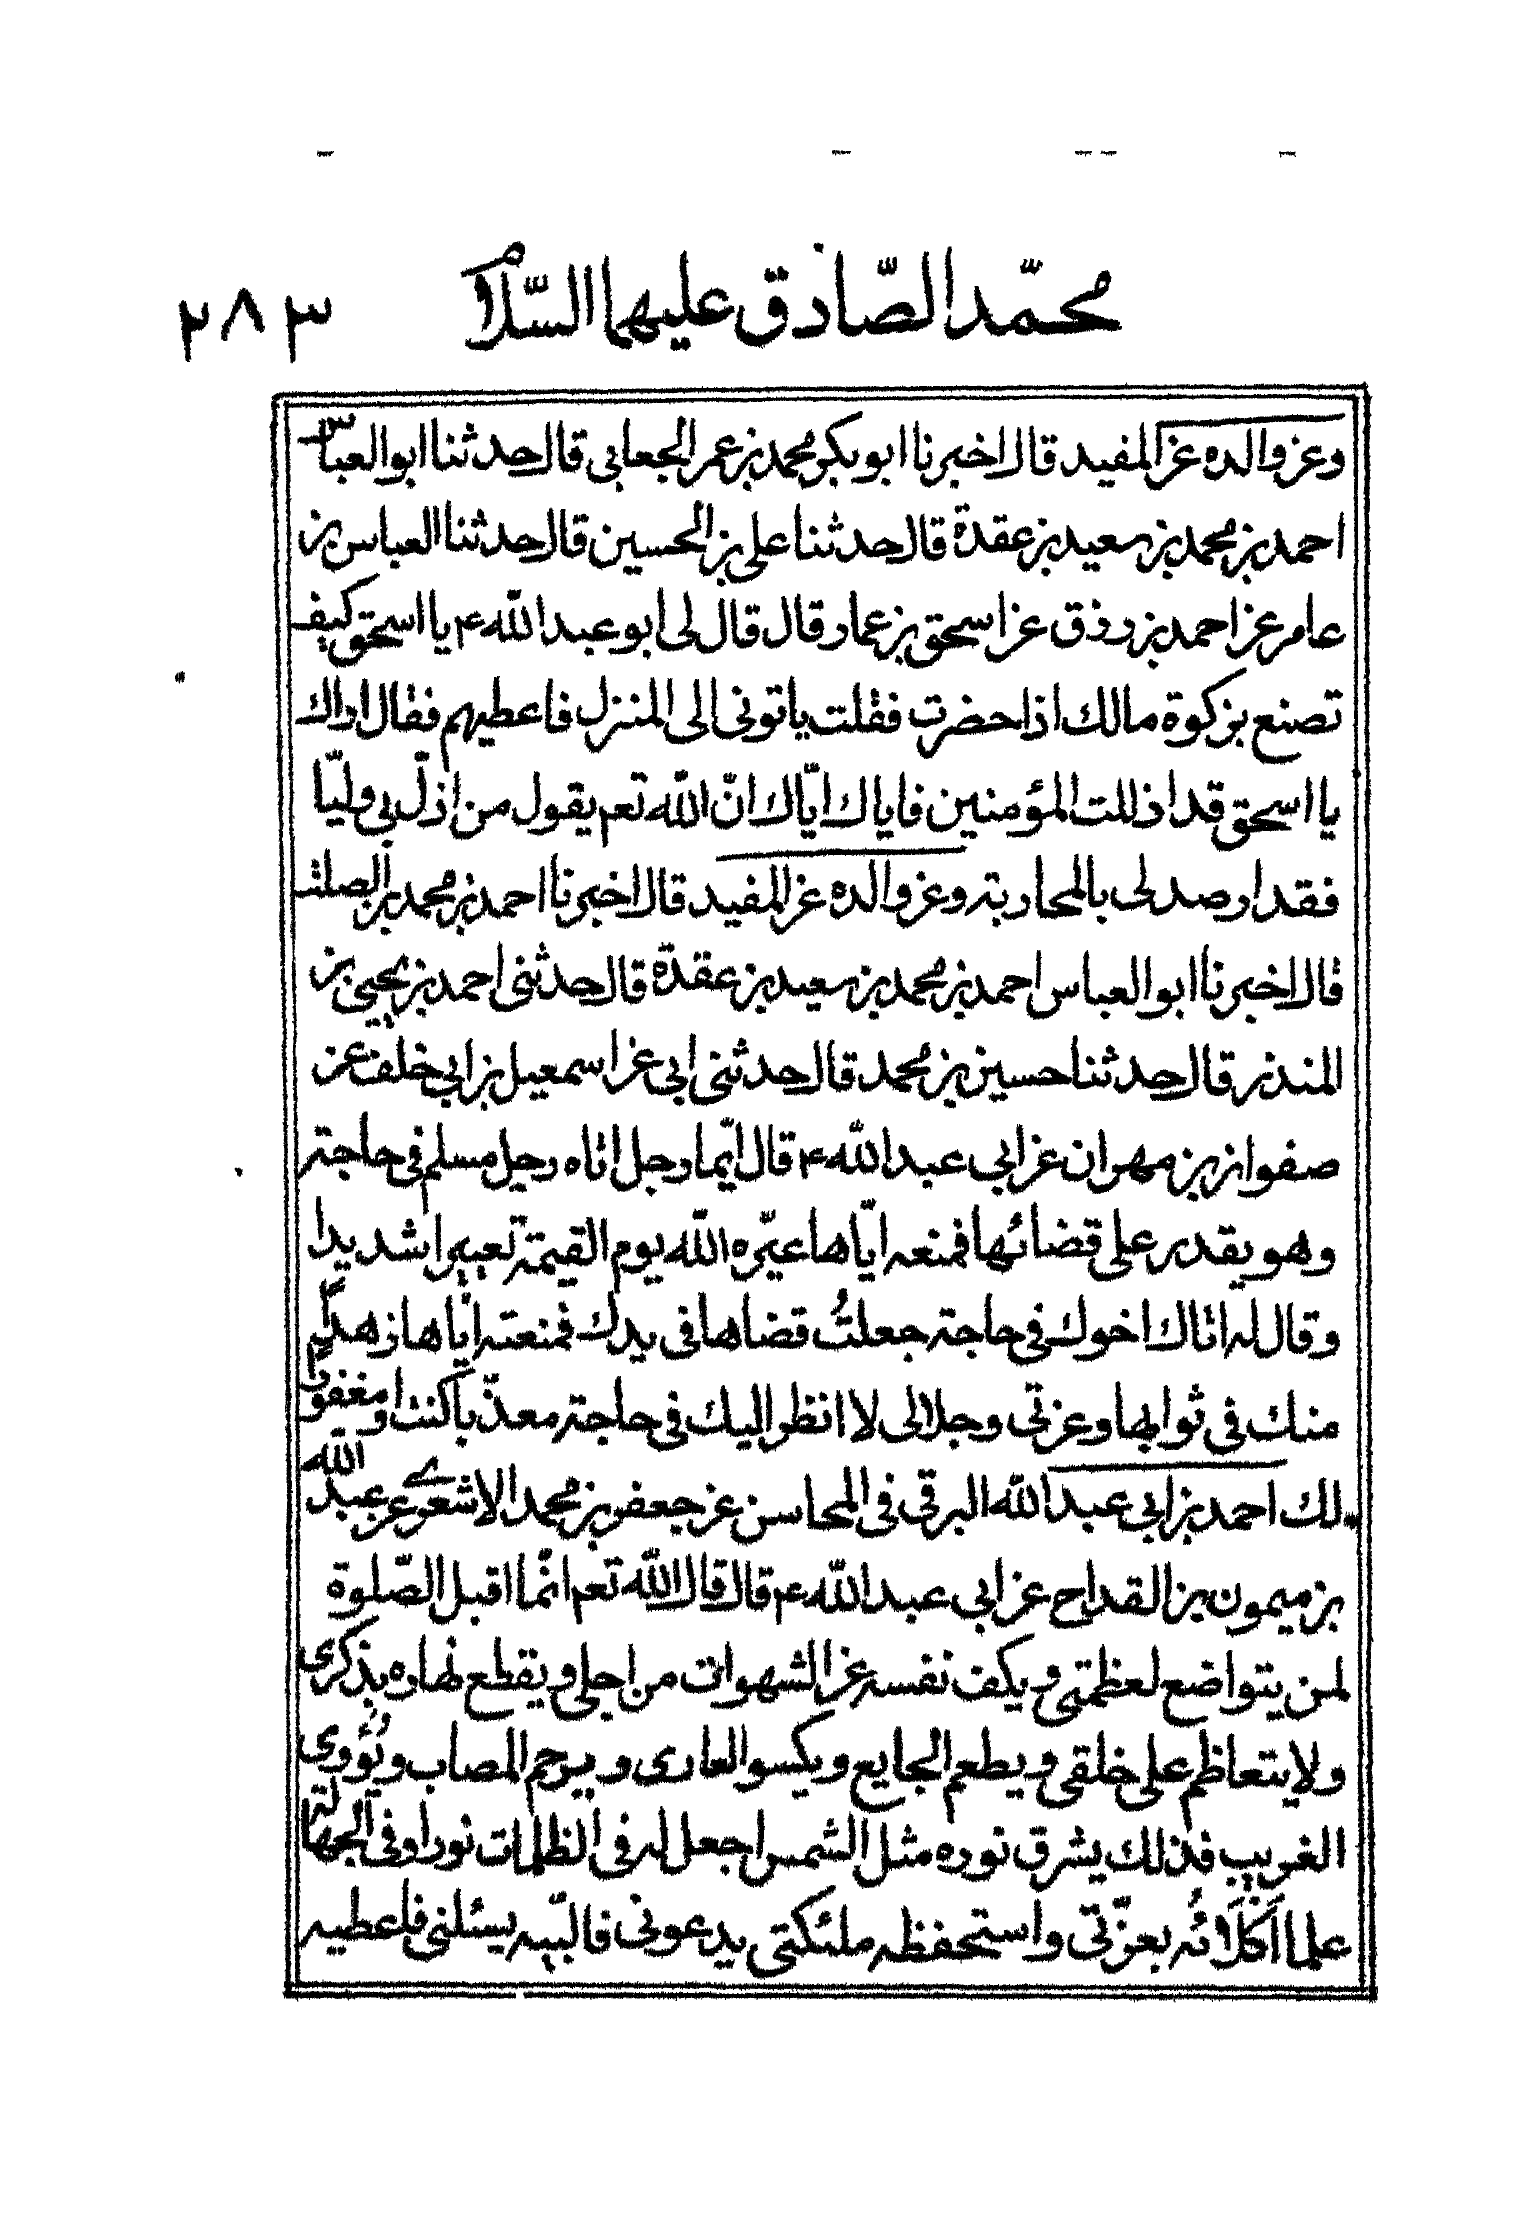 محمّد الصّادق عليهما السّلام ٢٨٣
وعن والده عن المفيد قال اخبرنا ابو بكر محمد بن عمر الجعابي قال حدثنا ابو العباس
احمد بن محمد بن سعيد بن عقدة قال حدثنا على بن الحسين قال حدثنا العباس بن
عامر عن احمد بن رزق عن اسحق بن عمار قال قال لى ابو عبد الله ع يا اسحق كيف
تصنع بزكوة مالك اذا حضرت فقلت ياتونى الى المنزل فاعطيهم فقال اراك
يا اسحق قد اذللت المؤمنين فاياك ايّاك انّ الله تعم يقول من اذلّ لي وليّا
فقد ارصد لى بالمحاربته وعن والده عن المفيد قال اخبرنا احمد بن محمد بن الصلت
قال اخبرنا ابو العباس احمد بن محمد بن سعيد بن عقدة قال حدثنى احمد بن يحيى بن
المنذر قال حدثنا حسين بن محمد قال حدثنى ابي عن اسمعيل بن ابي خلف عن
صفوان بن مهران عن ابي عبد الله ع قال ايّما رجل اتاه رجل مسلم فى حاجته
وهو يقدر على قضائها فمنعه ايّاها عيّره الله يوم القيمة تعييرا شديدا
وقال له اتاك اخوك فى حاجته جعلتُ قضاها فى يدك فمنعته ايّاها زهدا
منك فى ثوابها وعزتى وجلالى لا انظر اليك فى حاجته معذّبا كنت او مغفورا
لك احمد بن ابي عبد الله البرقى فى المحاسن عن جعفر بن محمد الاشعرى عن عبد الله
بن ميمون بن القداح عن ابي عبد الله ع قال قال الله تعم انّما اقبل الصّلوة
لمن يتواضع لعظمتى ويكف نفسه عن الشهوات من اجلى ويقطع نهاره بذكرى
ولا يتعاظم على خلقى ويطعم الجايع ويكسوا العارى ويرحم المصاب ويُؤوى
الغريب فذلك يشرق نوره مثل الشمس اجعل له فى الظلمات نورا وفى الجهالة
علما اَكْلَائُه بعزّتى واستحفظه ملئكتى يدعونى فالبّيه يسئلنى فاعطيه